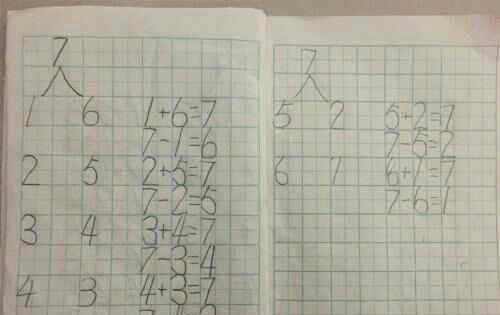 7
1 6 1+6=7
7-1=6
2 5 2+5=7
7-2=5
3 4 3+4=7
7-3=4
4 3 4+3=7
7
5 2 5+2=7
7-5=2
6 1 6+1=7
7-6=1